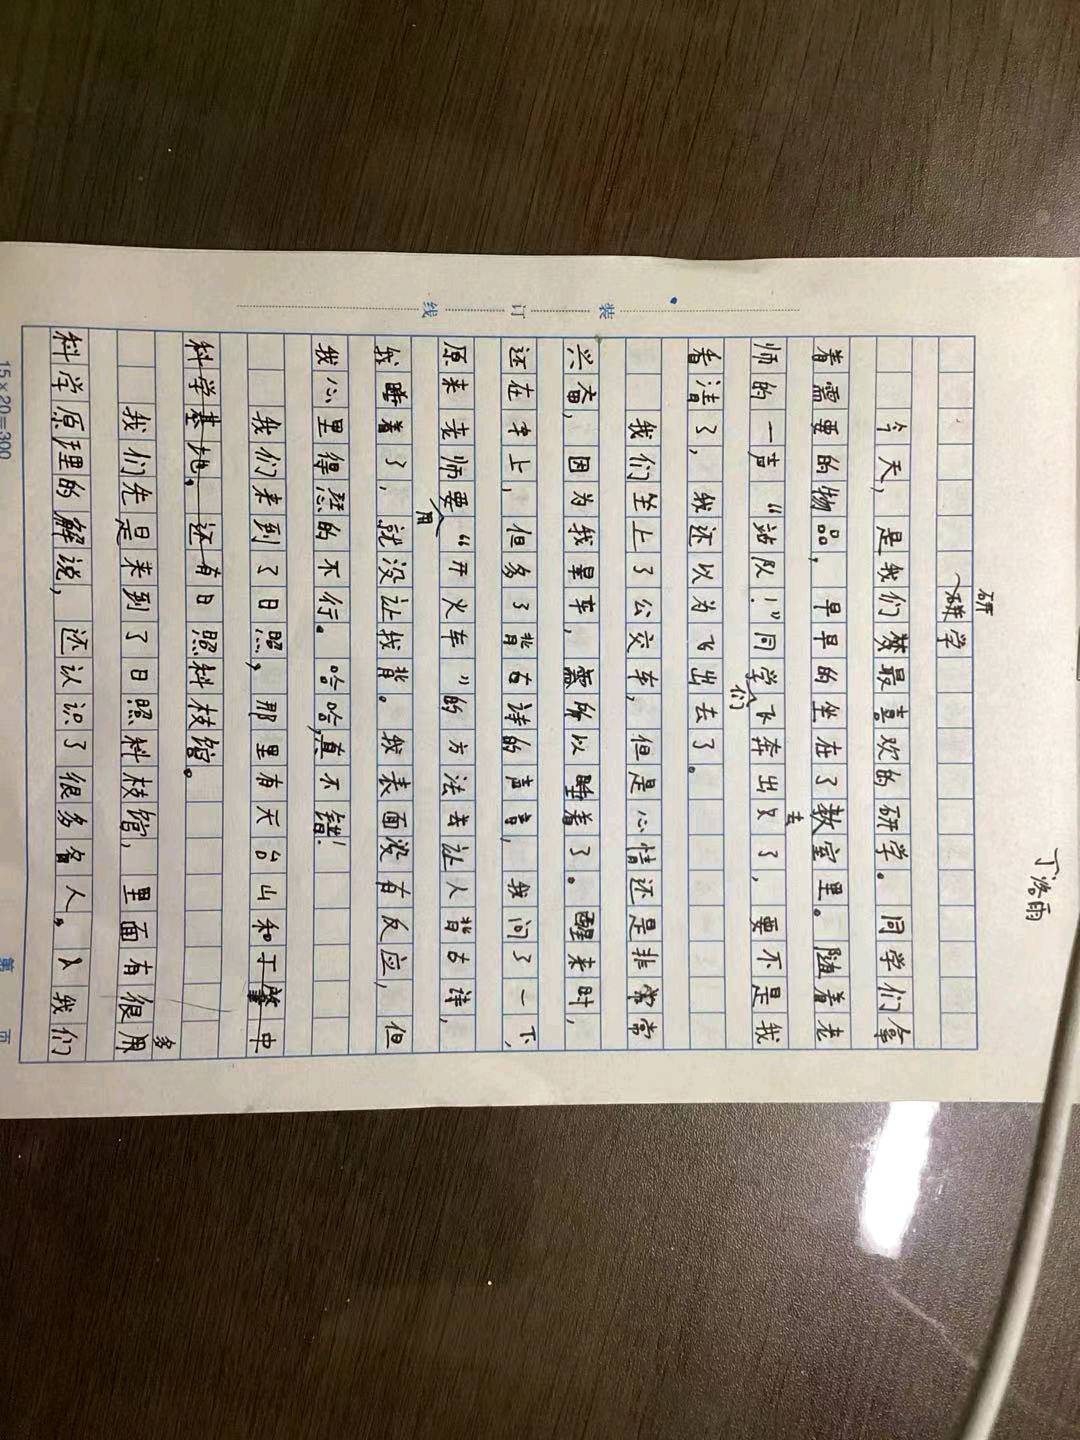 丁洛雨
研
研学
今天，是我们最喜欢的研学。同学们拿
着需要的物品，早早的坐在了教室里。随着老
师的一声“站队！”同学们飞奔出去了，要不是我
看清了，我还以为飞出去了。
我们坐上了公交车，但是心情还是非常
兴奋，因为我晕车，所以睡着了。醒来时，
还在车上，但多了背古诗的声音，我问了一下，
原来老师要用“开火车”的方法去让人背古诗，
我睡着了，就没让我背。我表面没有反应，但
我心里得意的不行。哈哈，真不错！
我们来到了日照，那里有天台山和中
科学基地。还有日照科技馆。
我们先是来到了日照科技馆，里面有很多
科学原理的解说，还认识了很多名人。我们
装订线
15×20=300
第 页